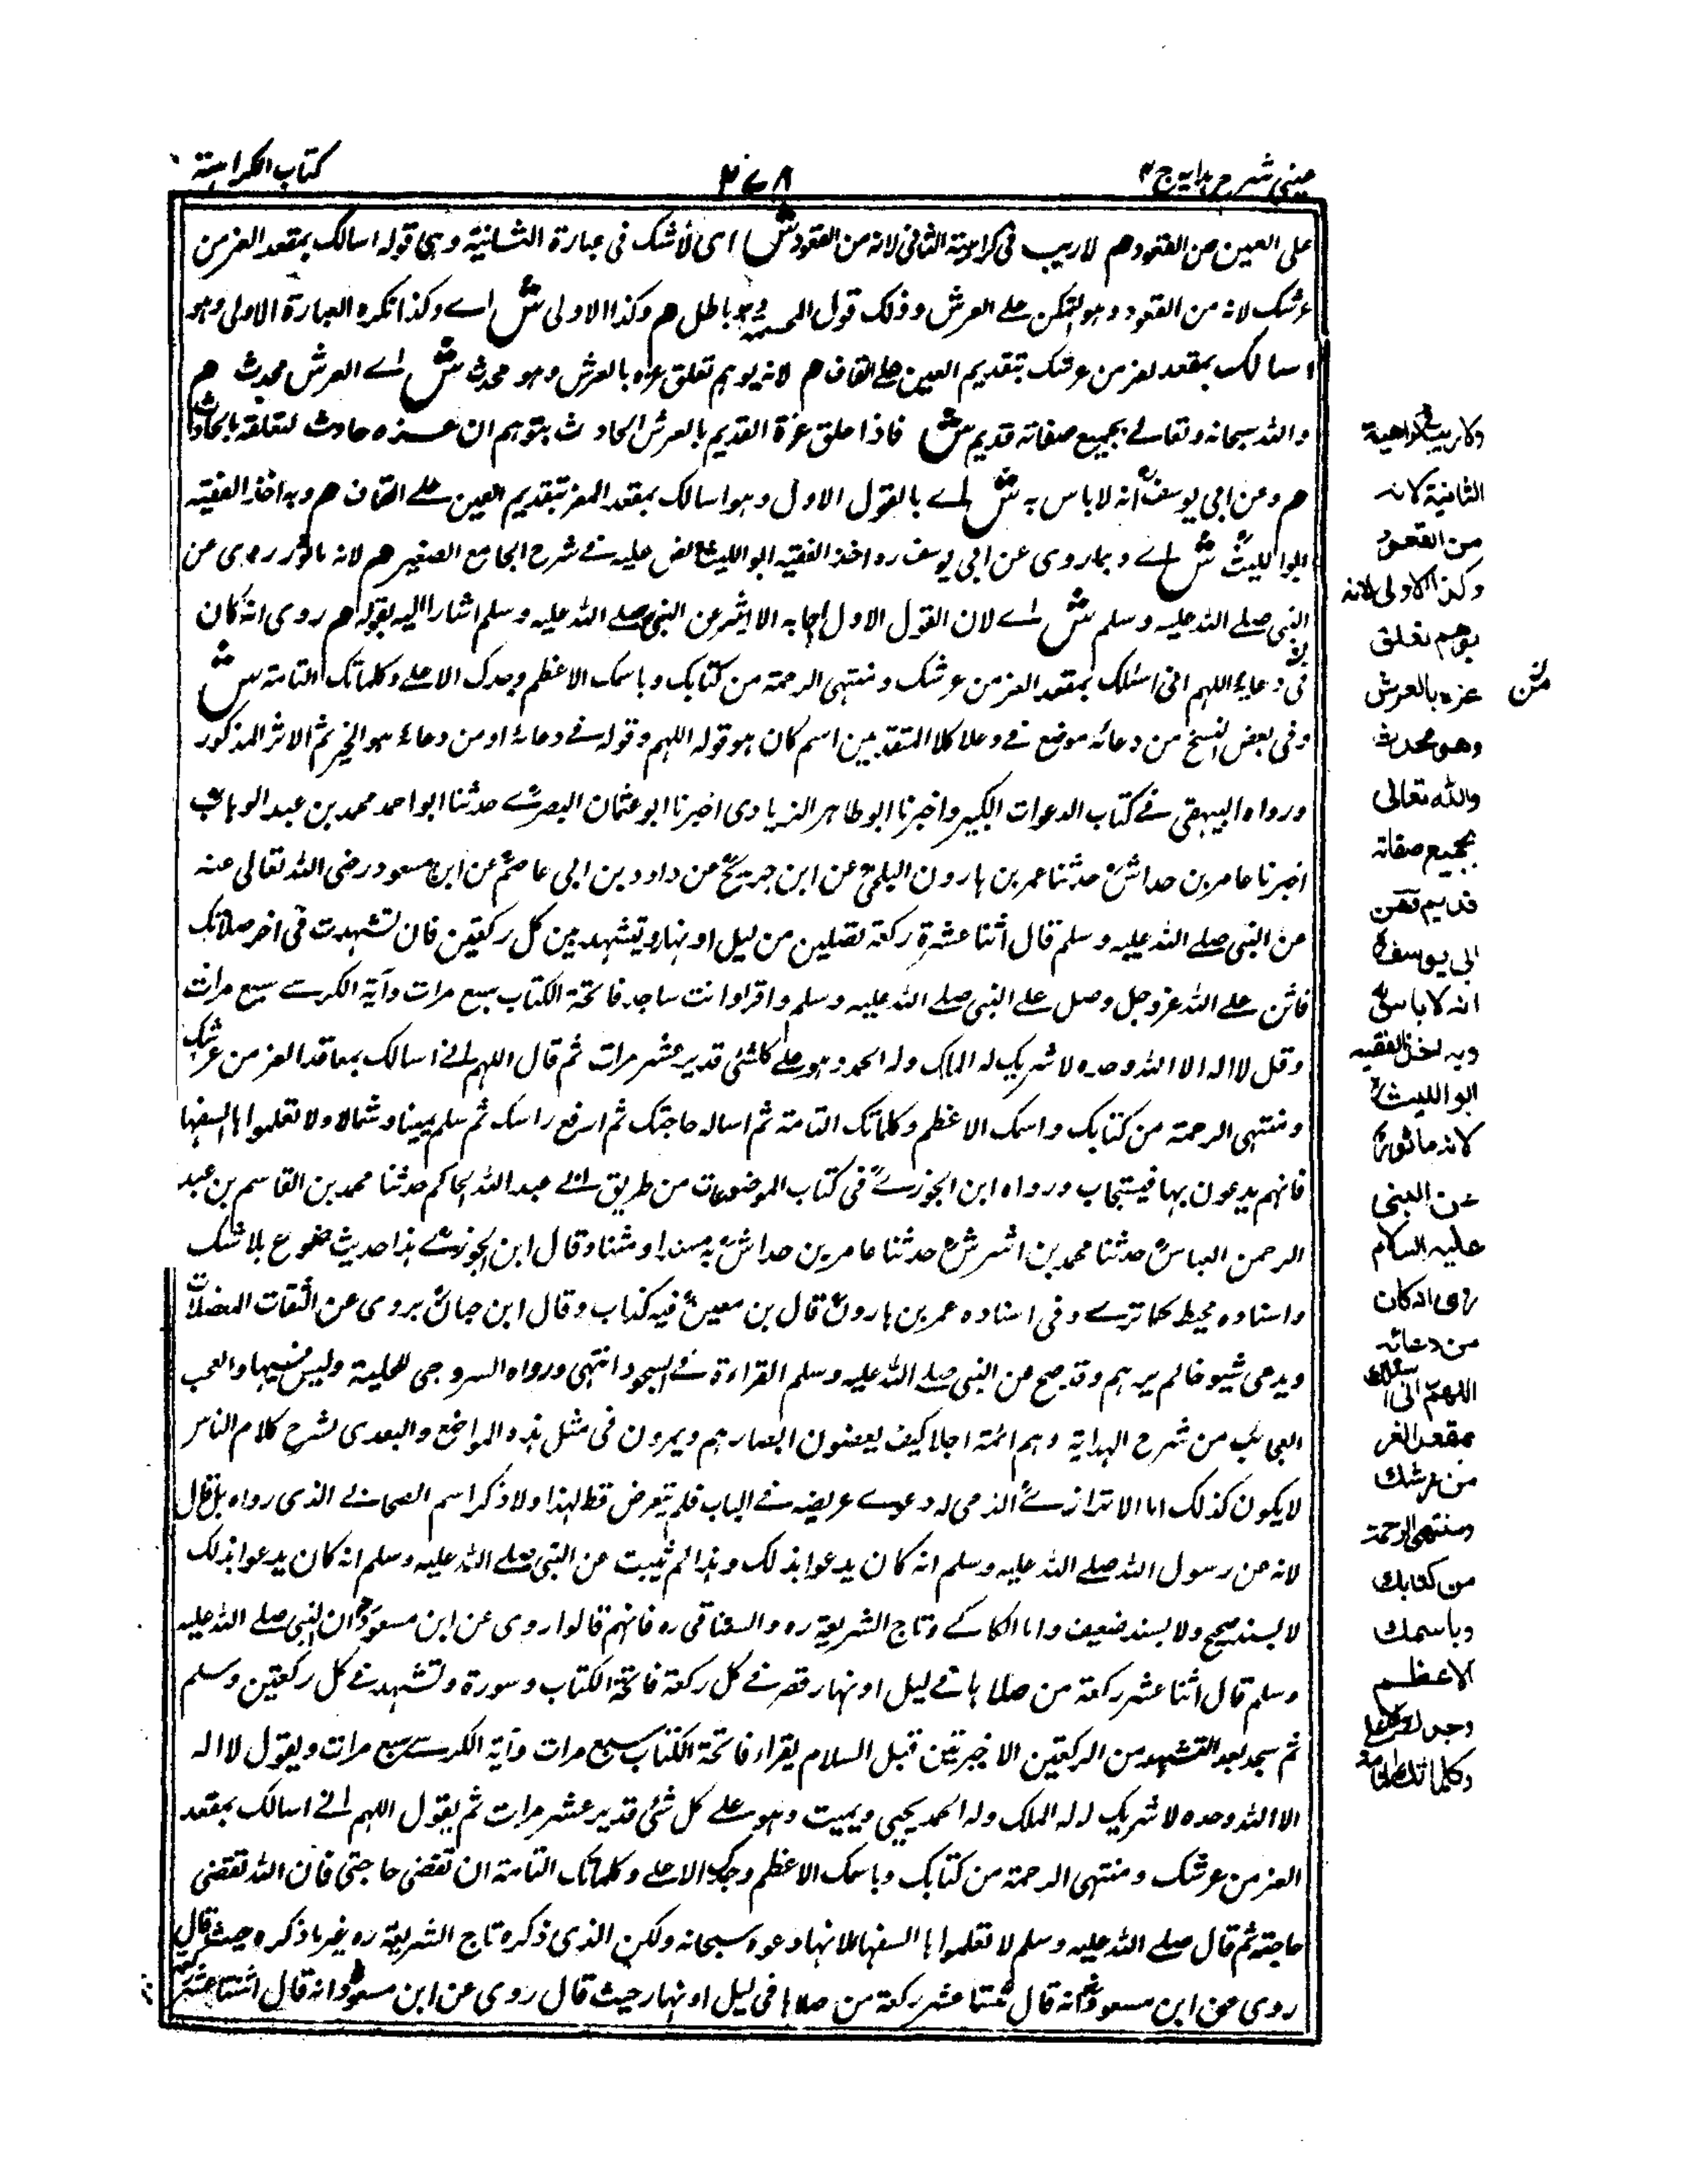 عيني شرح هدايه ج ٤
٢٧٨
كتاب الكراهية
على العين من القعود هم لاريب فى كراهية الثانى لانه من القعود ش اى لاشك فى عبارة الثانية وهى قوله اسالك بمقعد العز من
عرشك لانه من القعود وهو التمكن على العرش وذلك قول المجسمة وهو باطل هم وكذا الاولى ش اے وكذا تكره العبارة الاولى وهو
اسالك بمعقد العز من عرشك بتقديم العين على القاف هم لانه يوهم تعلق عزه بالعرش وهو محدث ش اے العرش محدث هم
والله سبحانه وتعالى بجميع صفاته قديم ش فاذا علق عزة القديم بالعرش الحادث يتوهم ان عزه حادث لتعلقه بالحادث
هم وعن ابى يوسف انه لاباس به ش اے بالقول الاول وهو اسالك بمعقد العز بتقديم العين على القاف هم وبه اخذ الفقيه
ابو الليث ش اے وبما روى عن ابى يوسف ره اخذ الفقيه ابو الليث نص عليه فى شرح الجامع الصغير هم لانه ماثور روى عن
النبى صلى الله عليه وسلم ش اے لان القول الاول جابه الاثر عن النبى صلى الله عليه وسلم اشار اليه بقوله هم روى انه كان
فى دعائه اللهم انى اسئلك بمقعد العز من عرشك ومنتهى الرحمة من كتابك وباسمك الاعظم وجدك الاعلى وكلماتك التامة ش
وفى بعض النسخ من دعائه موضع فى دعائه كلا المتقدمين اسم كان هو قوله اللهم وقوله فى دعائه او من دعائه هو الخبر ثم الاثر المذكور
ورواه البيهقى فى كتاب الدعوات الكبير واخبرنا ابو طاهر الزيادى اخبرنا ابو عثمان البصرى حدثنا ابو احمد محمد بن عبد الوهاب
اخبرنا عامر بن خداش حدثنا عمر بن هارون البلخى عن ابن جريج عن داود بن ابى عاصم عن ابن مسعود رضى الله تعالى عنه
عن النبى صلى الله عليه وسلم قال اثنا عشرة ركعة تصلين من ليل او نهار وتشهد بين كل ركعتين فان تشهدت فى اخر صلاتك
فاثن على الله عز وجل وصل على النبى صلى الله عليه وسلم واقرا وانت ساجد فاتحة الكتاب سبع مرات وآية الكرسى سبع مرات
وقل لا اله الا الله وحده لا شريك له الملك وله الحمد وهو على كل شئ قدير عشر مرات ثم قال اللهم انى اسالك بمعاقد العز من عرشك
ومنتهى الرحمة من كتابك واسمك الاعظم وكلماتك التامة ثم اساله حاجتك ثم ارفع راسك ثم سلم يمينا وشمالا ولا تعلموا ها السفها
فانهم يدعون بها فيستجاب ورواه ابن الجوزى فى كتاب الموضوعات من طريق ابى عبد الله الحاكم حدثنا محمد بن القاسم بن عبد
الرحمن العباس حدثنا محمد بن اشرش حدثنا عامر بن خداش به سندا ومتنا وقال ابن الجوزى هذا حديث موضوع بلا شك
واسناده محيط كما ترى وفى اسناده عمر بن هارون قال بن معين فيه كذاب وقال ابن حبان يروى عن الثقات المعضلات
ويدعى شيوخا لم يرهم وقد صح عن النبى صلى الله عليه وسلم القراءة فى السجود انتهى ورواه السروجى للحلية وليس فيها والعجب
العجائب من شرح الهداية وهم ائمة اجلا كيف يعضون ابصارهم ويمرون فى مثل هذه المواضع والبعدى لشرح كلام الناس
لا يكون كذلك اما الاترازى الذى له دعوى عريضه فى الباب فلم يتعرض قط لهذا ولا ذكر اسم الصحابى الذى رواه بل قال
لانه عن رسول الله صلى الله عليه وسلم انه كان يدعو بذلك وهذا لم يثبت عن النبى صلى الله عليه وسلم انه كان يدعو بذلك
لا بسند صحيح ولا بسند ضعيف واما الكاكى وتاج الشريعة ره والسغناقى ره فانهم قالوا روى عن ابن مسعود ان النبى صلى الله عليه
وسلم قال اثنا عشر ركعة من صلاها فى ليل او نهار قصر فى كل ركعة فاتحة الكتاب وسورة وتشهد فى كل ركعتين وسلم
ثم سجد بعد التشهد من الركعتين الاخيرتين قبل السلام يقراء فاتحة الكتاب سبع مرات وآية الكرسى سبع مرات ويقول لا اله
الا الله وحده لا شريك له له الملك وله الحمد يحيى ويميت وهو على كل شئ قدير عشر مرات ثم يقول اللهم انى اسالك بمقعد
العز من عرشك ومنتهى الرحمة من كتابك وباسمك الاعظم وجدك الاعلى وكلماتك التامة ان تقضى حاجتى فان الله تقضى
حاجته ثم قال صلى الله عليه وسلم لا تعلموا ها السفها لانها دعوه سبحانه ولكن الذى ذكره تاج الشريعة ره غير ما ذكره حيث قال
روى عن ابن مسعود انه قال ثمتا عشر ركعة من صلاها فى ليل او نهار حيث قال روى عن ابن مسعود انه قال اثنتا عشر
متن
ولا ريب فى كراهية
الثانية لانه
من القعود
وكذا الاولى لانه
يوهم تعلق
عزه بالعرش
وهو محدث
والله تعالى
بجميع صفاته
قديم وعن
ابى يوسف
انه لا باس به
وبه اخذ الفقيه
ابو الليث
لانه ماثور
عن النبى
عليه السلام
روى انه كان
من دعائه
اللهم انى اسئلك
بمقعد العز
من عرشك
ومنتهى الرحمة
من كتابك
وباسمك
الاعظم
وجدك الاعلى
وكلماتك التامة